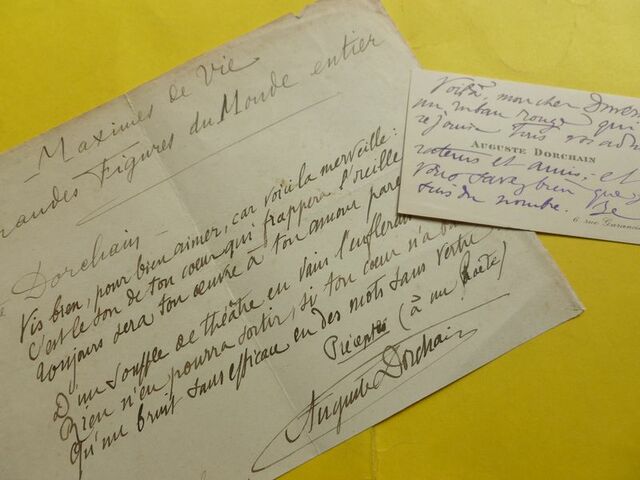 Maximes de Vie
Grandes Figures du Monde entier
Dorchain
Vis bien, pour bien aimer, car voici la merveille :
C'est le son de ton cœur qui frappera l'oreille
Toujours sera ton œuvre à ton amour
D'un souffle de théâtre en vain l'
Rien n'en pourra sortir, si ton cœur n'a
Qu'un bruit sans efficace en des mots sans vertu
Préceptes (à un Poète)
Auguste Dorchain
Voilà, mon cher
un ruban rouge qui
réjouira tous vos
AUGUSTE DORCHAIN
et amis; et
vous savez bien que
suis du nombre.
6 rue Garancière